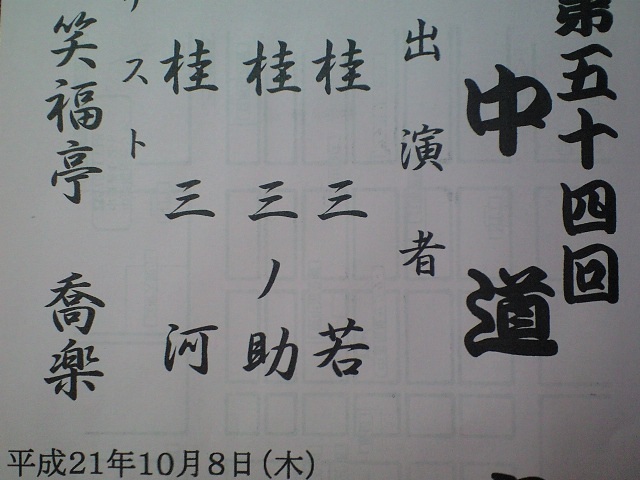 第五十四回
中道
出演者
桂三若
桂三ノ助
桂三河
スト
笑福亭喬楽
平成21年10月8日(木)